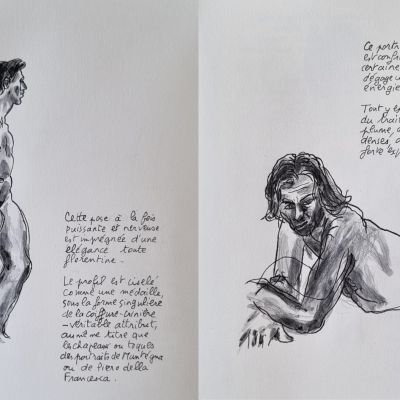 Cette pose à la fois
puissante et nerveuse
est imprégnée d'une
élégance toute
florentine.
Le profil est ciselé
comme une médaille,
sous la forme singulière
de la coiffure-crinière
- véritable attribut,
au même titre que
les chapeaux ou toques
des portraits de Mantegna
ou de Piero della
Francesca.
Ce portra
est confi
certaine
dégage u
énergie
Tout y es
du trait
plume, d
denses, d
force es